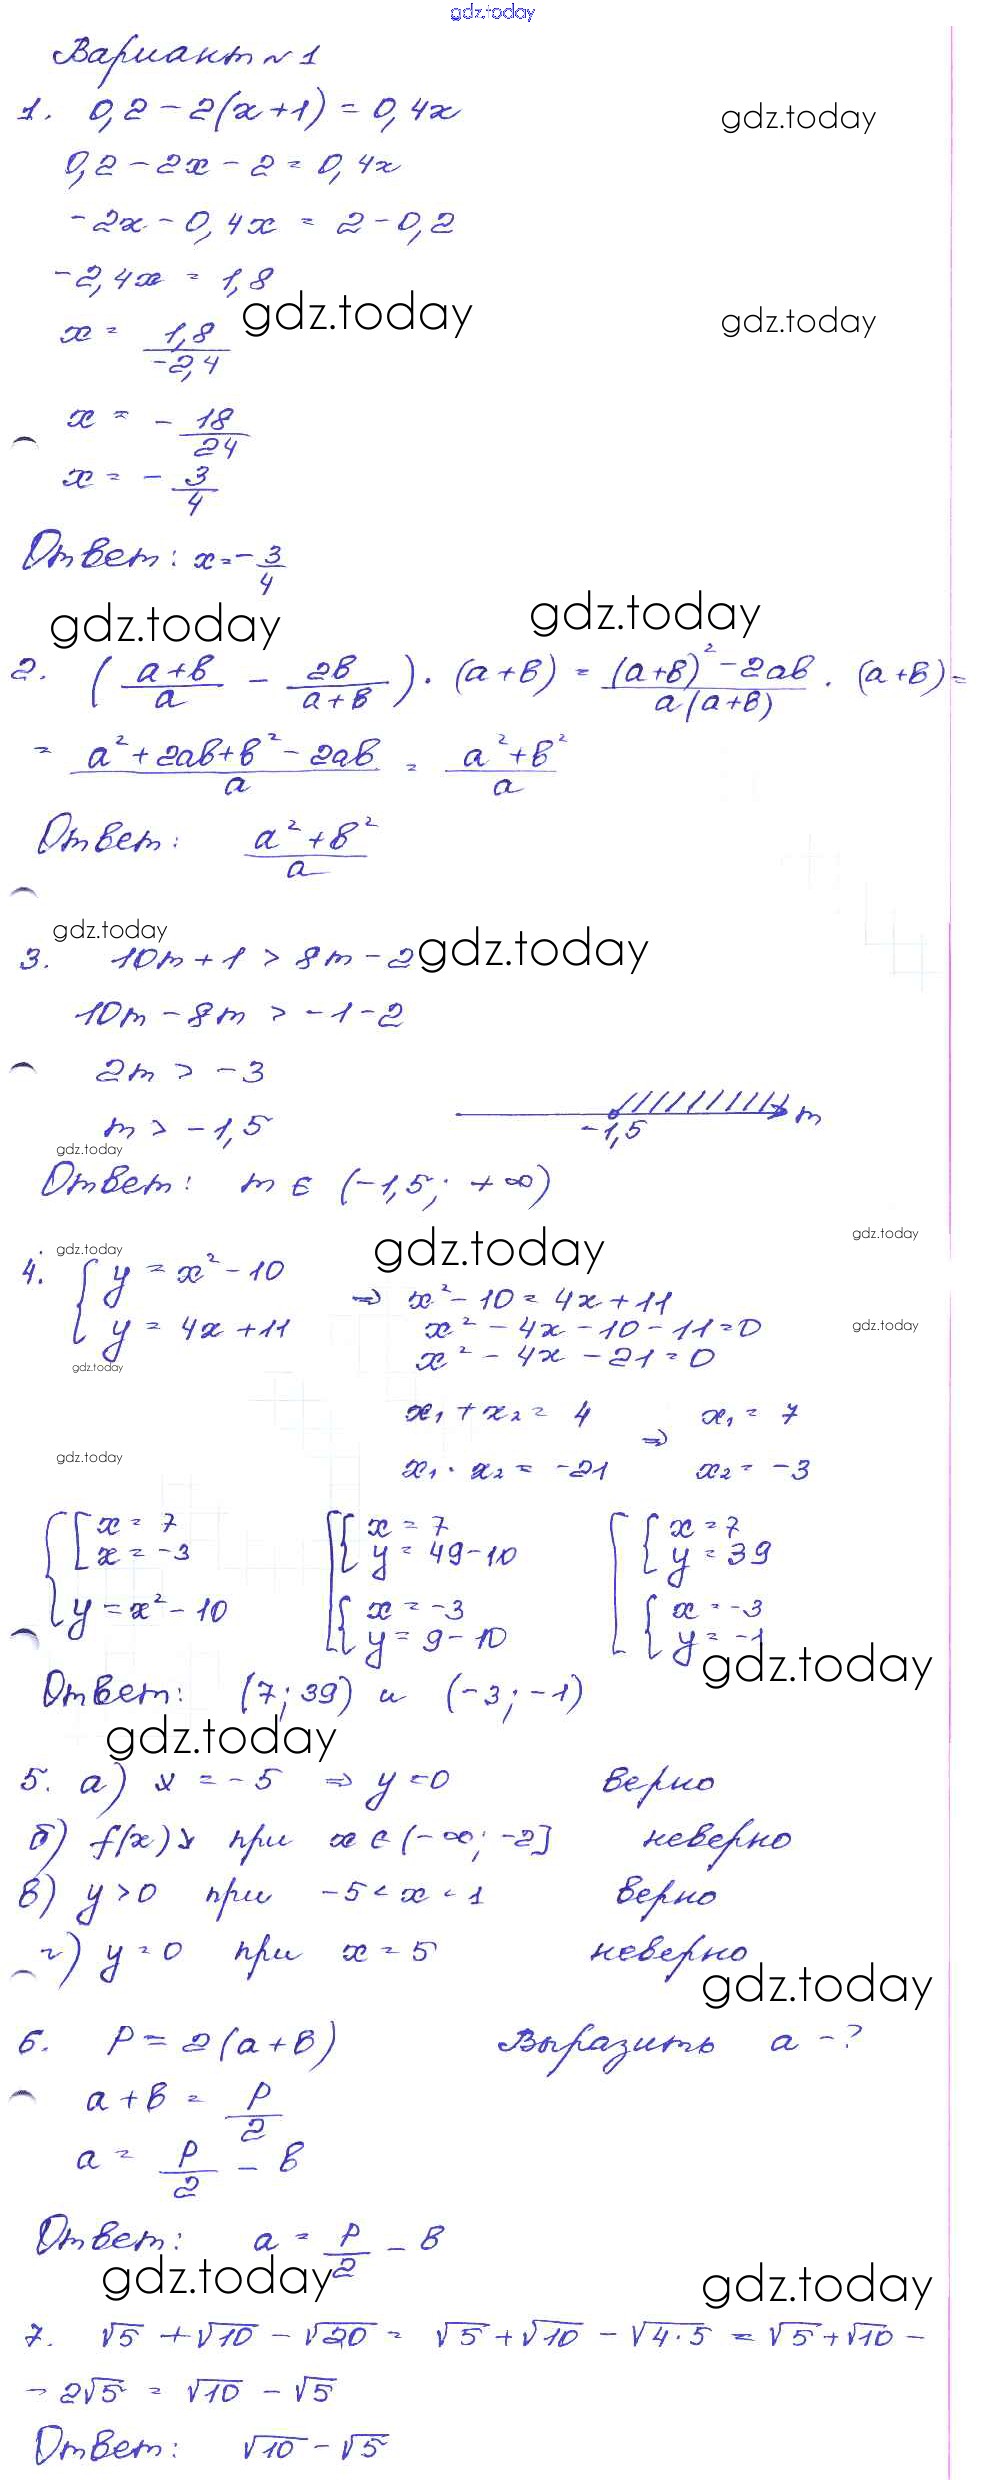 gdz.today
Вариант №1
1. 0,2 - 2(x+1) = 0,4x
gdz.today
0,2 - 2x - 2 = 0,4x
-2x - 0,4x = 2 - 0,2
-2,4x = 1,8
gdz.today
gdz.today
x = 1,8/-2,4
x = - 18/24
x = - 3/4
Ответ: x = - 3/4
gdz.today
gdz.today
2. ((a+b)/a - 2b/(a+b)) · (a+b) = ((a+b)² - 2ab)/(a(a+b)) · (a+b) =
= (a² + 2ab + b² - 2ab)/a = (a² + b²)/a
Ответ: (a² + b²)/a
gdz.today
3. 10m + 1 > 8m - 2
gdz.today
10m - 8m > -1 - 2
2m > -3
m > -1,5
-1,5 m
gdz.today
Ответ: m ∈ (-1,5; +∞)
gdz.today
gdz.today
gdz.today
4. { y = x² - 10 ⇒ x² - 10 = 4x + 11
y = 4x + 11 x² - 4x - 10 - 11 = 0
gdz.today
x² - 4x - 21 = 0
gdz.today
x₁ + x₂ = 4 ⇒ x₁ = 7
gdz.today
x₁ · x₂ = -21 x₂ = -3
{ [ x = 7 [ { x = 7 [ { x = 7
x = -3 y = 49 - 10 y = 39
y = x² - 10 { x = -3 { x = -3
y = 9 - 10 y = -1
gdz.today
Ответ: (7; 39) и (-3; -1)
gdz.today
5. а) x = -5 ⇒ y = 0 верно
б) f(x)↘ при x ∈ (-∞; -2] неверно
в) y > 0 при -5 < x < 1 верно
г) y = 0 при x = 5 неверно
gdz.today
6. P = 2(a+b) Выразить a - ?
a + b = P/2
a = P/2 - b
Ответ: a = P/2 - b
gdz.today
gdz.today
7. √5 + √10 - √20 = √5 + √10 - √4·5 = √5 + √10 -
- 2√5 = √10 - √5
Ответ: √10 - √5